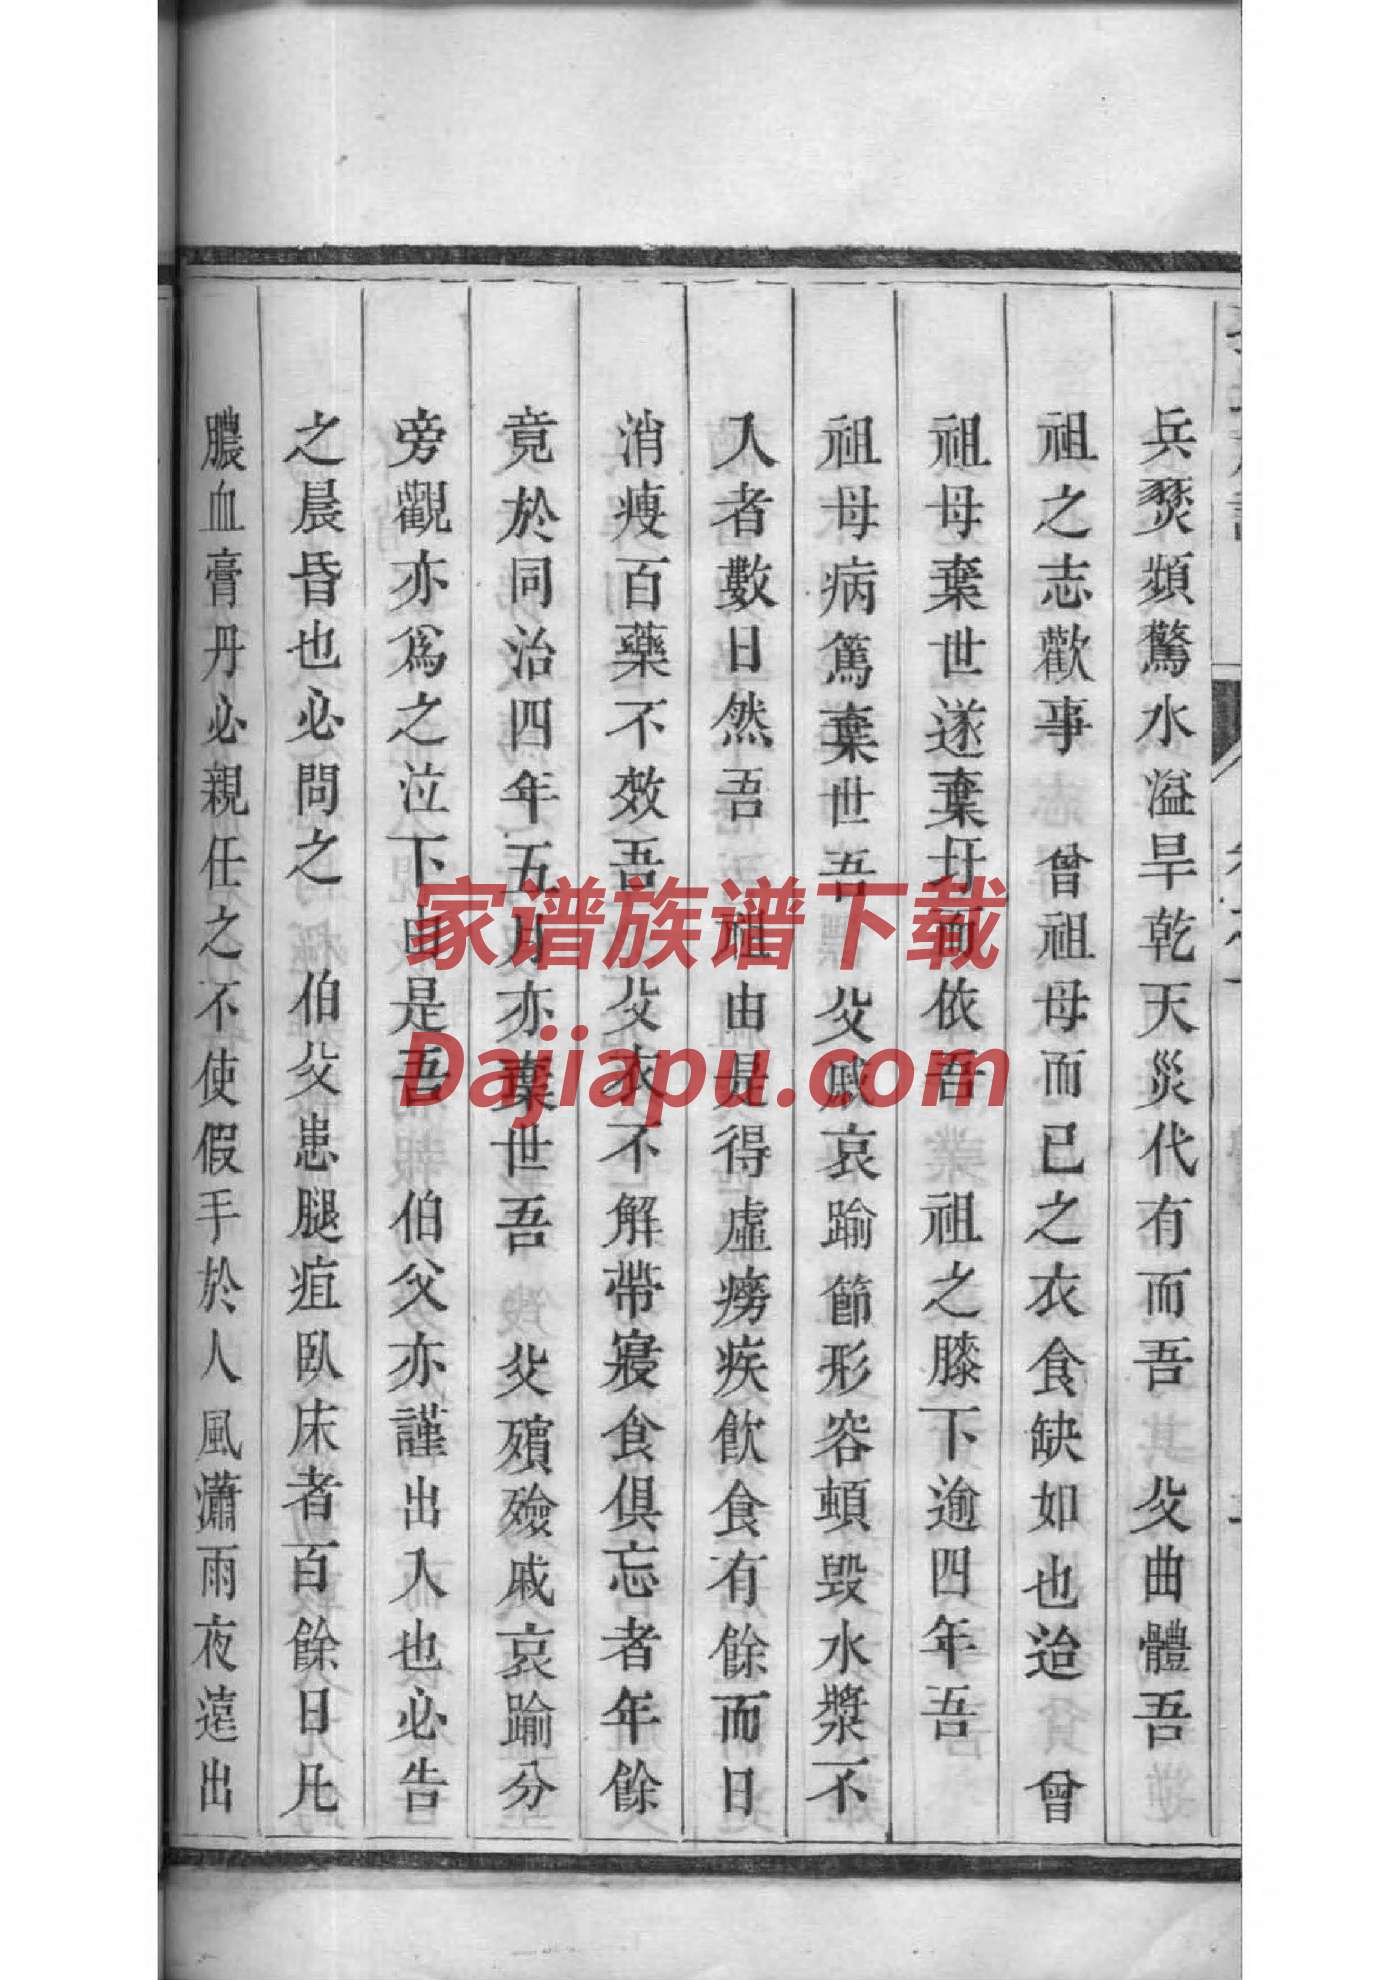 兵燹頻驚水溢旱乾天災代有而吾 父曲體吾
祖之志歡事 曾祖母而已之衣食缺如也迨 曾
祖母棄世遂棄圩而依吾 祖之膝下逾四年吾
祖母病篤棄世吾 父戚哀踰節形容頓毀水漿不
入者數日然吾 祖由是得虛癆疾飲食有餘而日
消瘦百藥不效吾 父衣不解帶寢食俱忘者年餘
竟於同治四年五月亦棄世吾 父殯殮戚哀踰分
旁觀亦爲之泣下由是吾 伯父亦謹出入也必告
之晨昏也必問之 伯父患腿疽臥床者百餘日凡
膿血膏丹必親任之不使假手於人風瀟雨夜遠出
家谱族谱下载
Dajiapu.com